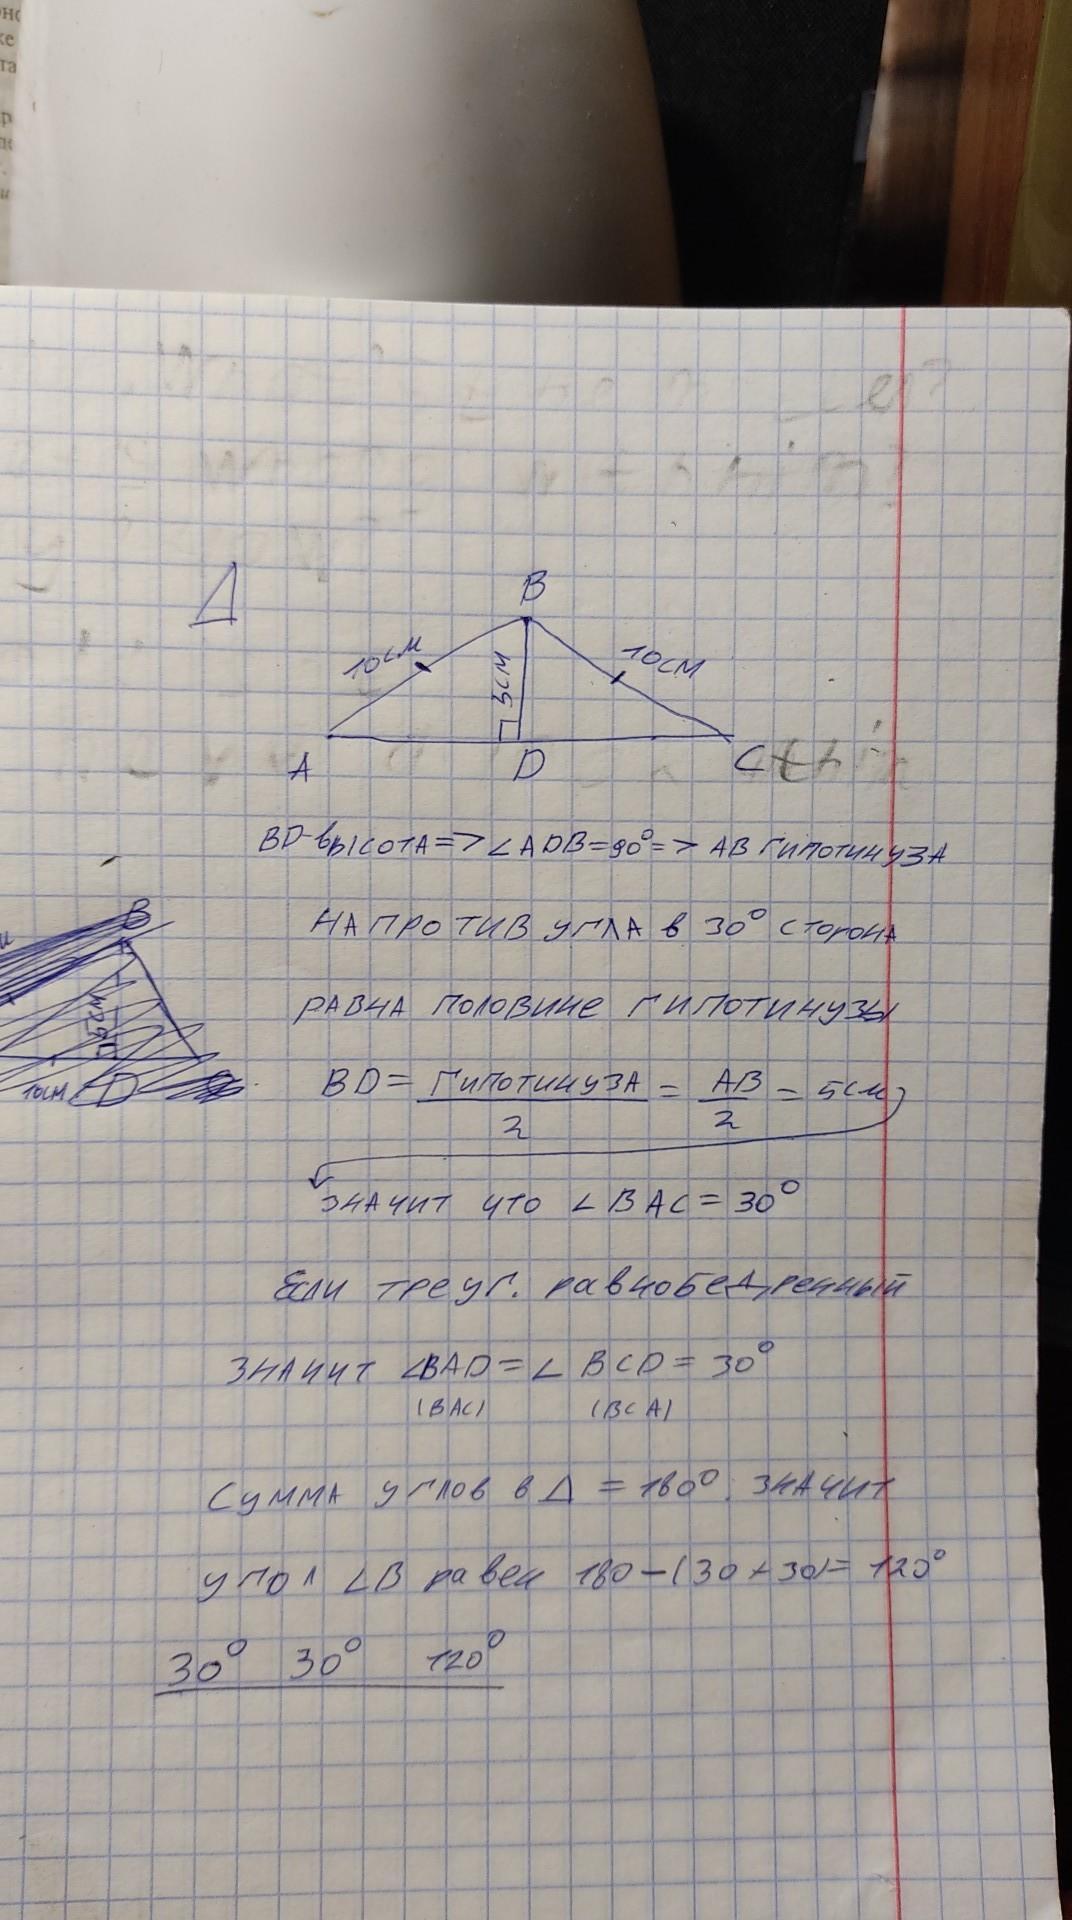 B
10см
10см
5см
A
D
C
BD-высота=>∠ADB=90°=> AB гипотинуза
B
напротив угла в 30° сторона
равна половине гипотинузы
5см
10см
D
BD = Гипотинуза/2 = AB/2 = 5см
значит что ∠BAC=30°
Если треуг. равнобедренный
значит ∠BAD=∠BCD=30°
(BAC) (BCA)
Сумма углов в Δ = 180°. значит
угол ∠B равен 180-(30+30)= 120°
30° 30° 120°